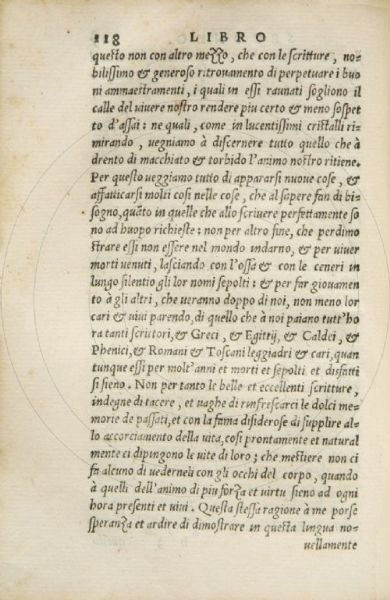 118 LIBRO
questo non con altro mezzo, che con le scritture, no-
bilissimo & generoso ritrouamento di perpetuare i buo
ni ammaestramenti, i quali in essi raunati sogliono il
calle del viuere nostro rendere piu certo & meno sospet
to d'assai: ne quali, come in lucentissimi cristalli ri-
mirando, vegniamo à discernere tutto quello che à
drento di macchiato & torbido l'animo nostro ritiene.
Per questo veggiamo tutto di appararsi nuoue cose, &
affatticarsi molti cosi nelle cose, che al sapere fan di bi-
sogno, quãto in quelle che allo scriuere perfettamente so
no ad huopo richieste: non per altro fine, che perdimo
strare essi non essere nel mondo indarno, & per viuer
morti venuti, lasciando con l'ossa & con le ceneri in
lungo silentio gli lor nomi sepolti: & per far giouamen
to à gli altri, che veranno doppo di noi, non meno lor
cari & viui parendo, di quello che à noi paiano tutt'ho
ra tanti scrittori, & Greci, & Egittij, & Caldei, &
Phenici, & Romani & Toscani leggiadri & cari, quan
tunque essi per molt'anni et morti et sepolti et disfatti
si sieno. Non per tanto le belle et eccellenti scritture,
indegne di tacere, et vaghe di rinfrescarci le dolci me-
morie de passati, et con la fama disiderose di supplire al-
lo accorciamento della vita, cosi prontamente et natural
mente ci dipingono le vite di loro; che mestiere non ci
fa alcuno di vederneli con gli occhi del corpo, quando
à quelli dell'animo di piu forza et virtu sieno ad ogni
hora presenti et viui. Questa stessa ragione à me porse
speranza et ardire di dimostrare in questa lingua no-
uellamente